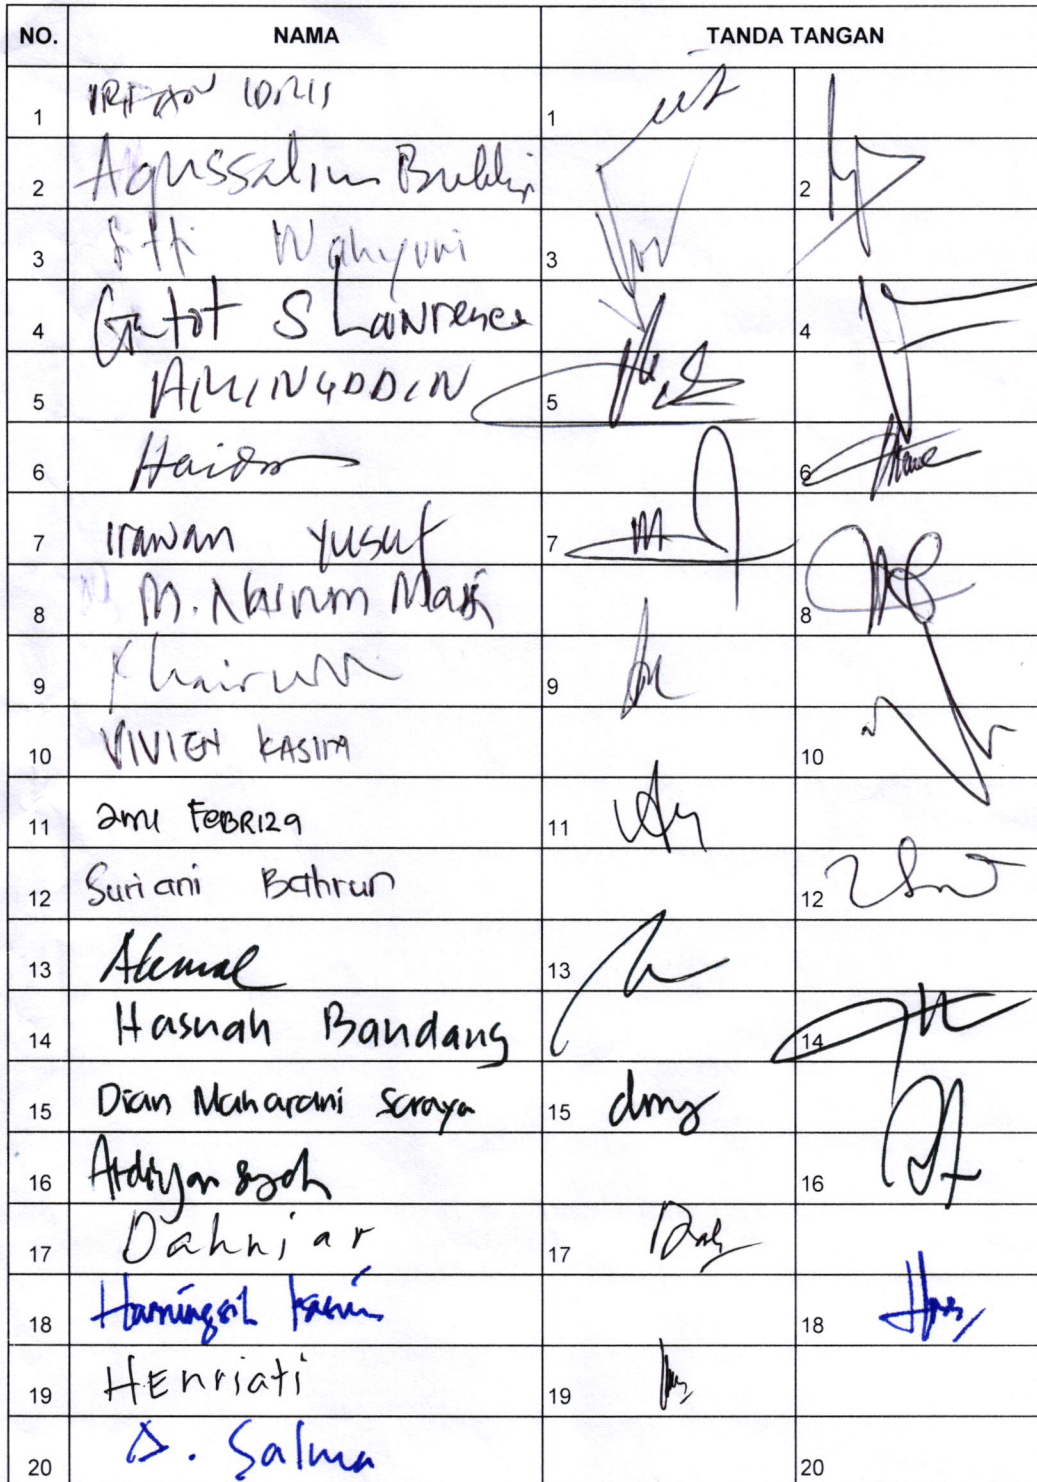 NO. NAMA TANDA TANGAN
1 IRFAN IDRIS 1
2 Agussalim Bukhari 2
3 Sitti Wahyuni 3
4 Gatot S Lawrence 4
5 AMINUDDIN 5
6 6
7 Irawan Yusuf 7
8 M. 8
9 9
10 VIVIEN KASIM 10
11 ami FEBRIZA 11
12 Suriani Bahrun 12
13 Akmal 13
14 Hasnah Bandang 14
15 Dian Maharani Soraya 15
16 Ardiyansyah 16
17 Dahniar 17
18 Harningsih Kasim 18
19 HEnriati 19
20 A. Salma 20